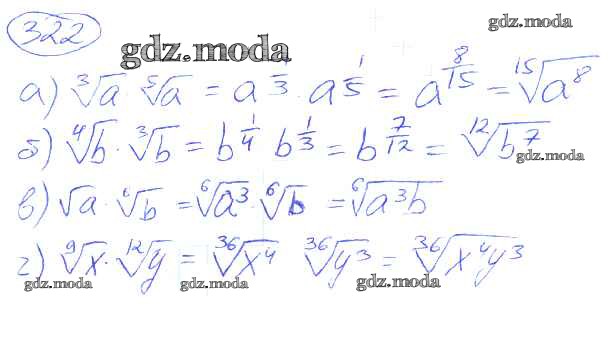 322
gdz.moda
gdz.moda
а) ∛a · ⁵√a = a^(1/3) · a^(1/5) = a^(8/15) = ¹⁵√(a⁸)
б) ⁴√b · ∛b = b^(1/4) b^(1/3) = b^(7/12) = ¹²√(b⁷)
gdz.moda
в) √a · ⁶√b = ⁶√(a³) · ⁶√b = ⁶√(a³b)
г) ⁹√x · ¹²√y = ³⁶√(x⁴) ³⁶√(y³) = ³⁶√(x⁴y³)
gdz.moda gdz.moda gdz.moda